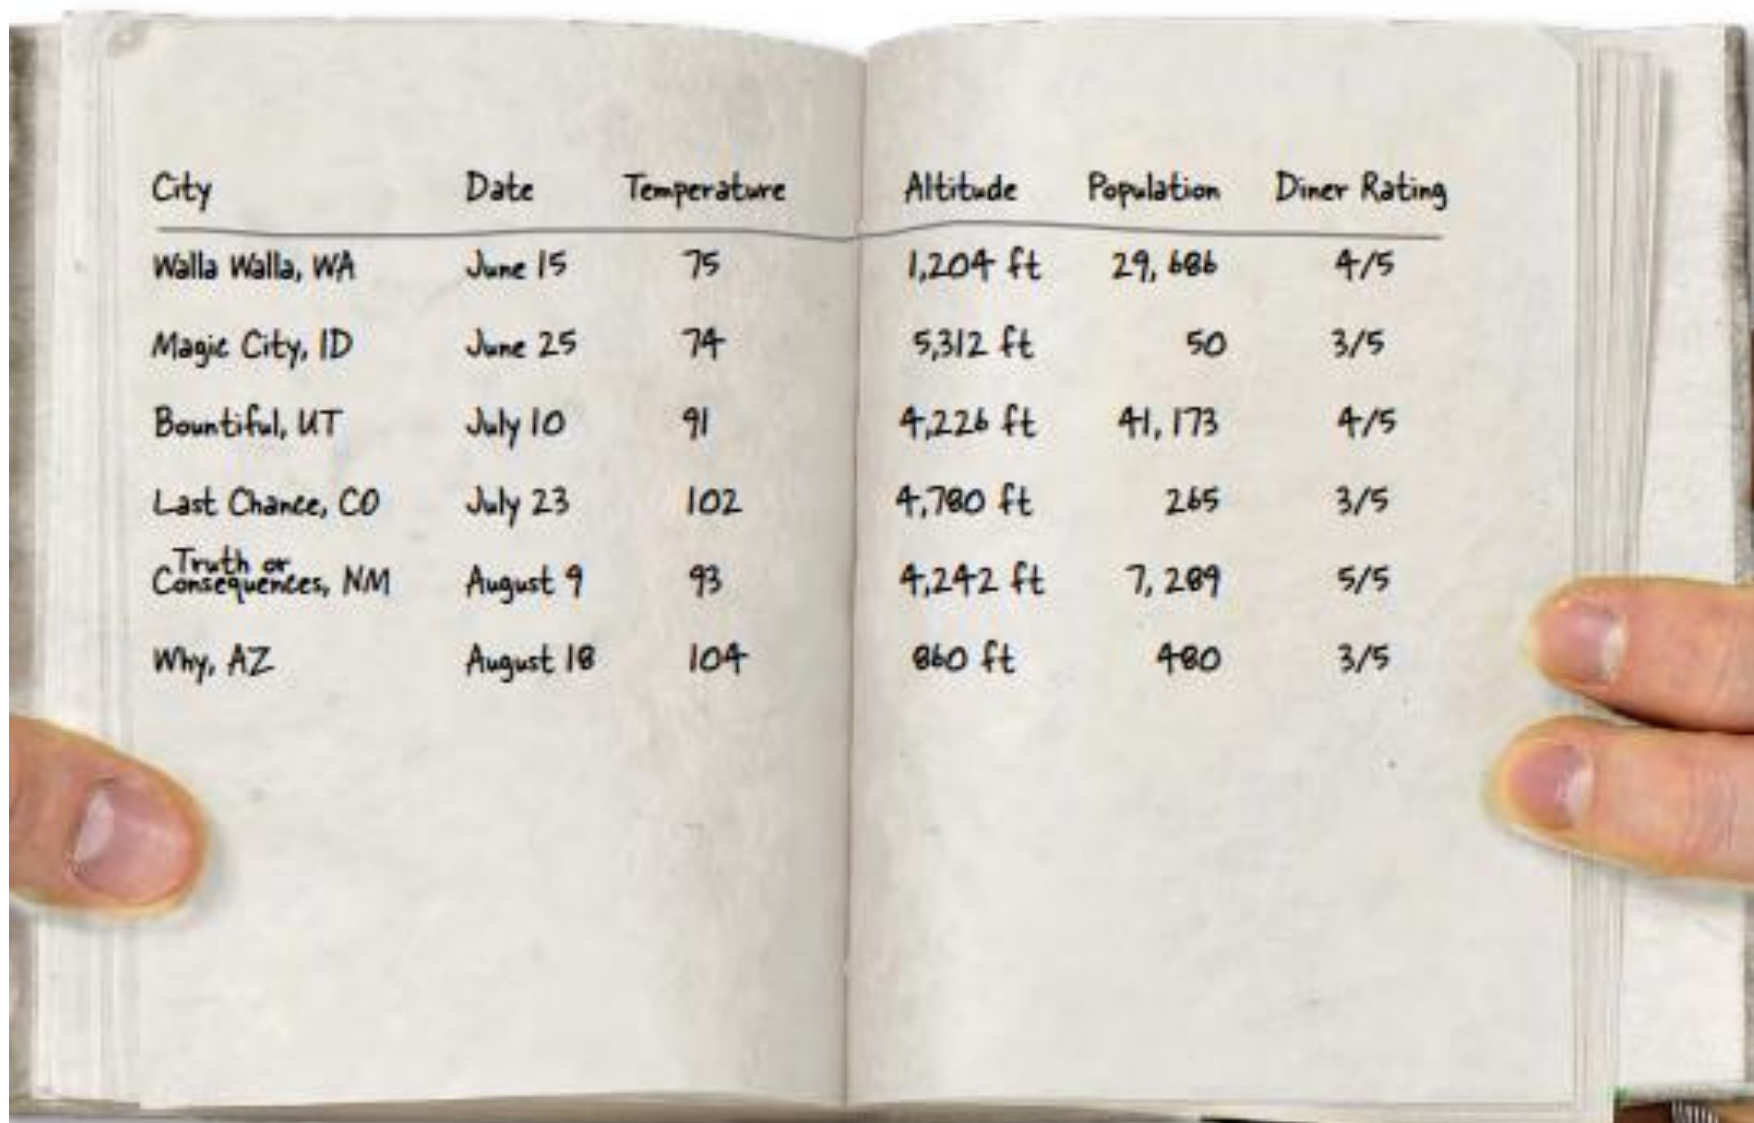 City Date Temperature Altitude Population Diner Rating
Walla Walla, WA June 15 75 1,204 ft 29,686 4/5
Magic City, ID June 25 74 5,312 ft 50 3/5
Bountiful, UT July 10 91 4,226 ft 41,173 4/5
Last Chance, CO July 23 102 4,780 ft 265 3/5
Truth or
Consequences, NM August 9 93 4,242 ft 7,289 5/5
Why, AZ August 18 104 860 ft 480 3/5